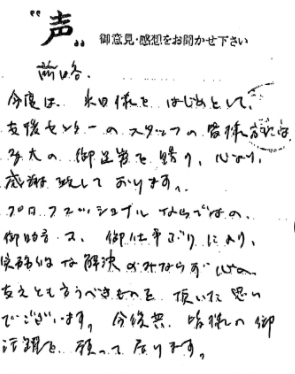 "声" 御意見・感想をお聞かせ下さい
前略.
今度は、永田様を はじめとして、
支援センターのスタッフの皆様方には
多大の御尽力を賜り、心より
感謝致して おります。
プロフェッショナル ならではの、
御助言、又、御仕事ぶりにより、
実務的な解決のみならず 心の
支えとも言うべきものを 頂いた思い
でございます。今後共、皆様の御
活躍を 願って居ります。